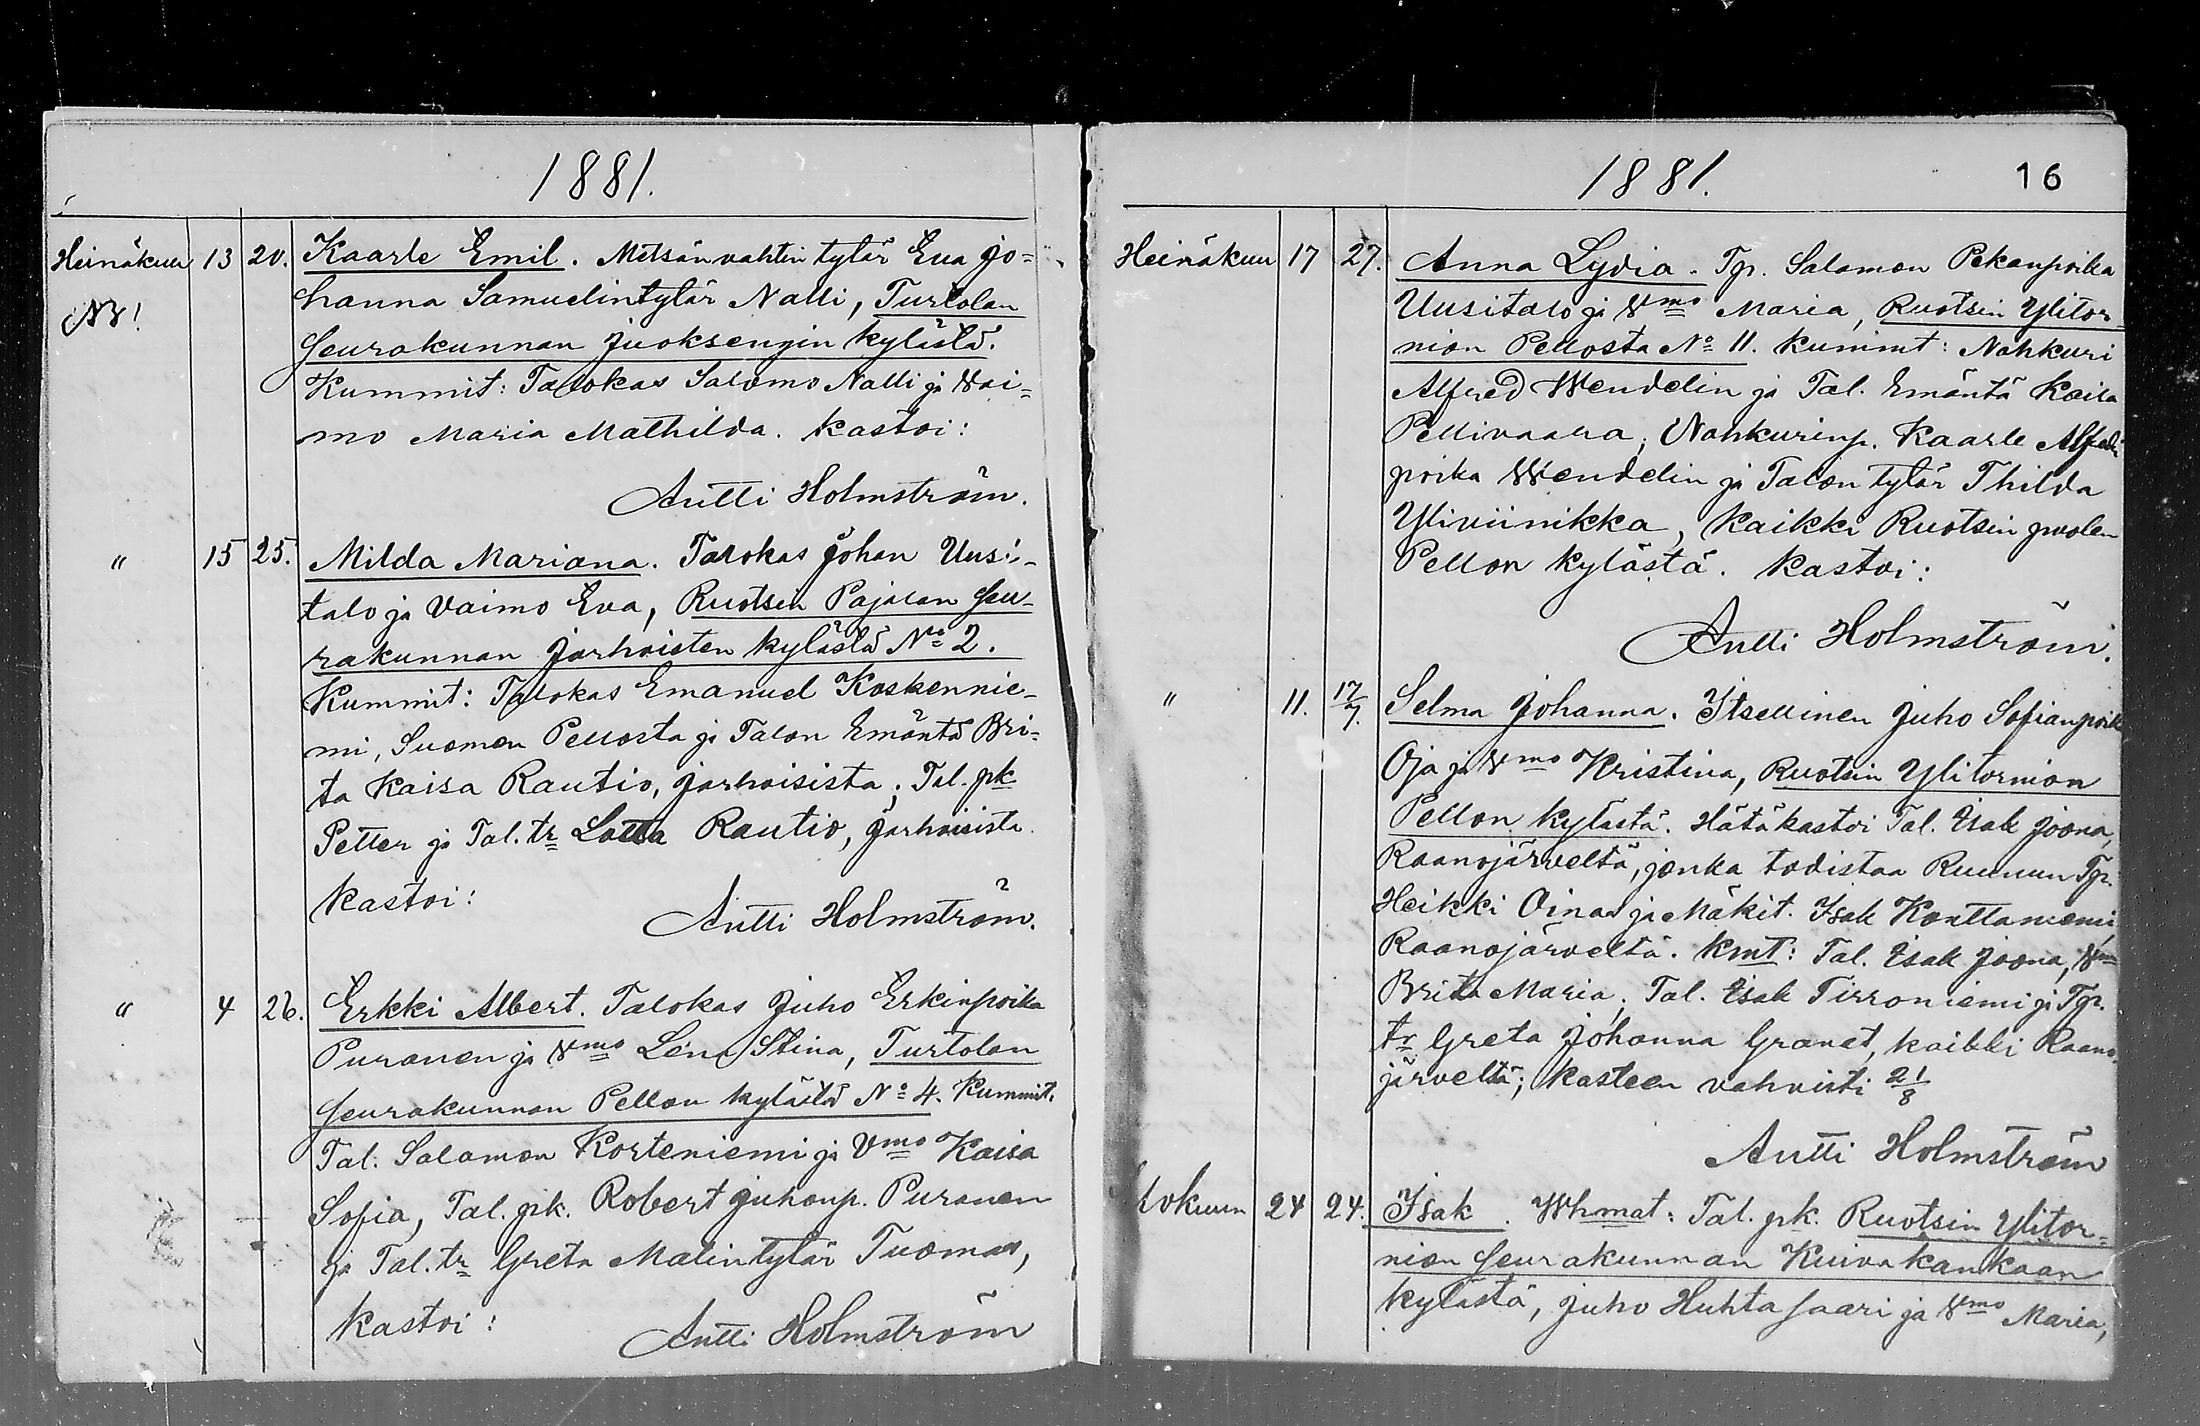 1881.
Heinäkuu 13 20. Kaarle Emil. Metsänvahtin tytär Eva Jo=
hanna Samuelintytär Nalli, Turtolan
NB!
Seurakunnan Juoksengin kylästä.
Kummit: Talokas Salomo Nalli ja Wai=
mo Maria Mathilda. Kastoi:
Antti Holmström.
" 15 25. Milda Mariana. Talokas Johan Uusi-
talo ja Vaimo Eva, Ruotsin Pajalan Seu-
rakunnan Jarhoisten kylästä No 2.
Kummit: Talokas Emanuel Koskennie-
mi, Suomen Pellosta ja Talon Emäntä Bri=
ta Kaisa Rautio, Jarhoisista; Tal. pk
Petter ja Tal. tr Lotta Rautio, Jarhoisista
Kastoi:
Antti Holmström.
" 4 26. Erkki Albert. Talokas Juho Erkinpoika
Puranen ja Vmo Lena Stina, Turtolan
Seurakunnan Pellon kylästä No 4. Kummit.
Tal: Salamon Korteniemi ja Vmo Kaisa
Sofia, Tal. pk. Robert Juhonp. Puranen
ja Tal. tr Greta Malintytär Tuomas,
Kastoi:
Antti Holmström
1881.
16
Heinäkuu 17 27. Anna Lydia. Tp. Salamon Pekanpoika
Uusitalo ja Vmo Maria, Ruotsin Ylitor
nion Pellosta No 11. Kummit: Nahkuri
Alfred Wendelin ja Tal. Emäntä Kaisa
Pellivaara; Nahkurinp. Kaarle
poika Wendelin ja Talon tytär Thilda
Yliviinikka, Kaikki Ruotsin puolen
Pellon kylästä. Kastoi:
Antti Holmström.
" 11. 17/7. Selma Johanna. Itsellinen Juho Sofianpoik
Oja ja Vmo Kristina, Ruotsin Ylitornion
Pellon kylästä. Hätäkastoi Tal. Isak Joona,
Raanojärveltä, jonka todistaa Ruunun Tp.
Heikki Oinas ja Mäkit. Isak Konttaniemi
Raanojärveltä. Kmt: Tal. Isak Joona, Vmo
Brita Maria; Tal. Isak Tirroniemi ja Tp.
tr Greta Johanna Granat, kaikki Raano
järveltä; Kasteen vahvisti 21/8
Antti Holmström
lokuun 24 24. Isak. Whmat: Tal. pk. Ruotsin Ylitor=
nion Seurakunnan Kuivakankaan
kylästä, Juho Huhtasaari ja Vmo Maria,